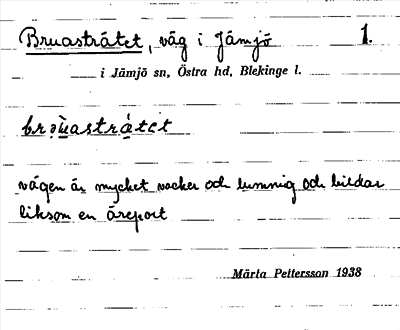 Bruastrátet, väg i Jämjö 1.
i Jämjö sn, Östra hd, Blekinge l.
vägen är mycket vacker och lummig och bildar
liksom en äreport
Märta Pettersson 1938